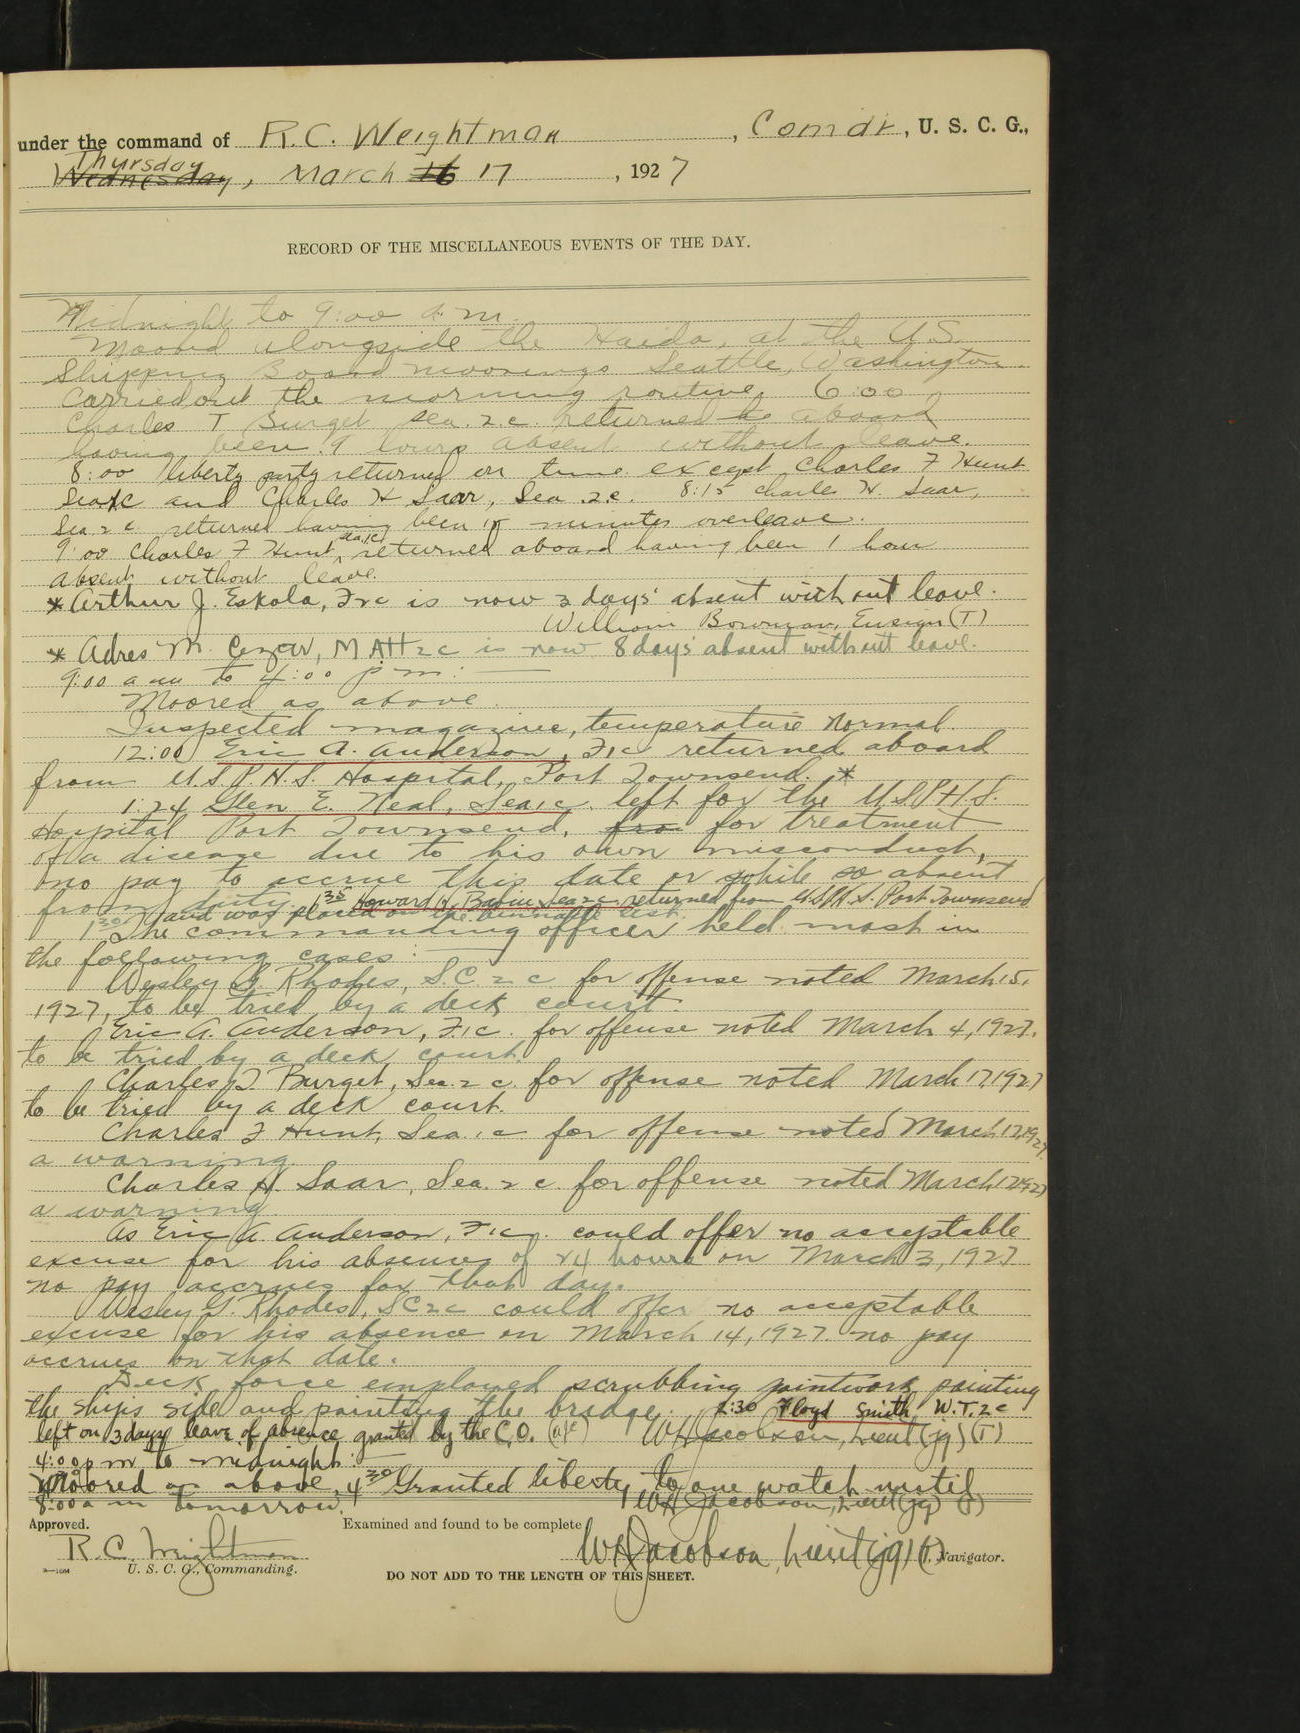 under the command of R.C. Weightman, Comdr, U. S. C. G.,
Thursday
Wednesday, March 16 17, 1927
RECORD OF THE MISCELLANEOUS EVENTS OF THE DAY.
Midnight to 9:00 a.m.
Moored alongside the Haida, at the U.S.
Shipping Board moorings Seattle, Washington.
Carried out the morning routine. 6:00
Charles T Burget Sea. 2.c. returned to aboard
having been 9 hours absent without leave.
8:00 liberty party returned on time except Charles F Hunt
Sea1c and Charles H Saar, Sea .2.c. 8:15 Charle H. Saar,
Sea 2 c returned having been 15 minutes overleave.
9:00 Charles F Hunt, Sea1c returned aboard having been 1 hour
absent without leave.
* Arthur J. Eskola, F2c is now 3 days' absent without leave.
William Bowman, Ensign (T)
* Adres M. Cezar, MAtt2c is now 8 days' absent without leave.
9:00 a m to 4:00 p m.
Moored as above.
Inspected magazine, temperature normal.
12:00 Eric A. Anderson, F1c returned aboard
from U.S.P.H.S. Hospital, Port Townsend. *
1:24 Glen E. Neal, Sea1c. left for the U.S.P.H.S.
Hospital Port Townsend, fro for treatment
of a disease due to his own misconduct,
no pay to accrue this date or while so absent
from duty. 1 35 Howard H. Sea2c returned from U.S.P.H.S. Port Townsend
and was placed on the binnacle list.
1 30 The commanding officer held mast in
the following cases:
Wesley G. Rhodes, S.C. 2 c for offense noted March 15,
1927, to be tried by a deck court.
Eric A. Anderson, F.1c. for offense noted March 4, 1927.
to be tried by a deck court.
Charles T Burget, Sea. 2 c. for offense noted March 17, 1927
to be tried by a deck court.
Charles F Hunt, Sea. 1 c for offense noted March 17, 1927
a warning.
Charles H. Saar, Sea. 2 c. for offense noted March 17 1927
a warning
As Eric A Anderson, F.1c. could offer no acceptable
excuse for his absence of 24 hours on March 3, 1927
no pay accrues for that day.
Wesley G. Rhodes, SC2c could offer no acceptable
excuse for his absence on March 14, 1927. no pay
accrues on that date.
Deck force employed scrubbing paintwork, painting
the ships side and painting the bridge. 2:30 Floyd Smith W.T.2c
left on 3 days leave of absence granted by the C.O. W H Jacobson, Lieut (jg) (T)
4:00 p m to midnight.
Moored as above, 4 30 Granted liberty to one watch until
8:00 a m tomorrow. W H Jacobson, Lieut (jg) (T)
Approved. Examined and found to be complete
R.C. Weightman W H Jacobson, Lieut (jg) (T), Navigator.
U. S. C. G., Commanding.
DO NOT ADD TO THE LENGTH OF THIS SHEET.